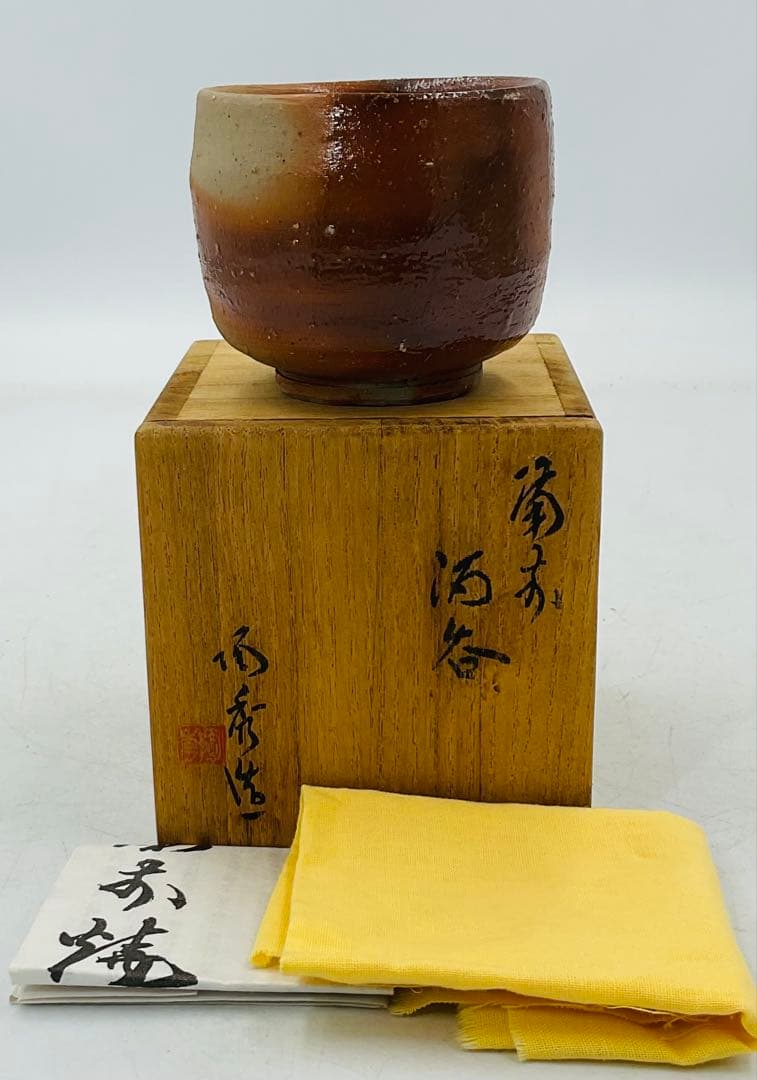 備前
酒呑
陶秀造
前焼